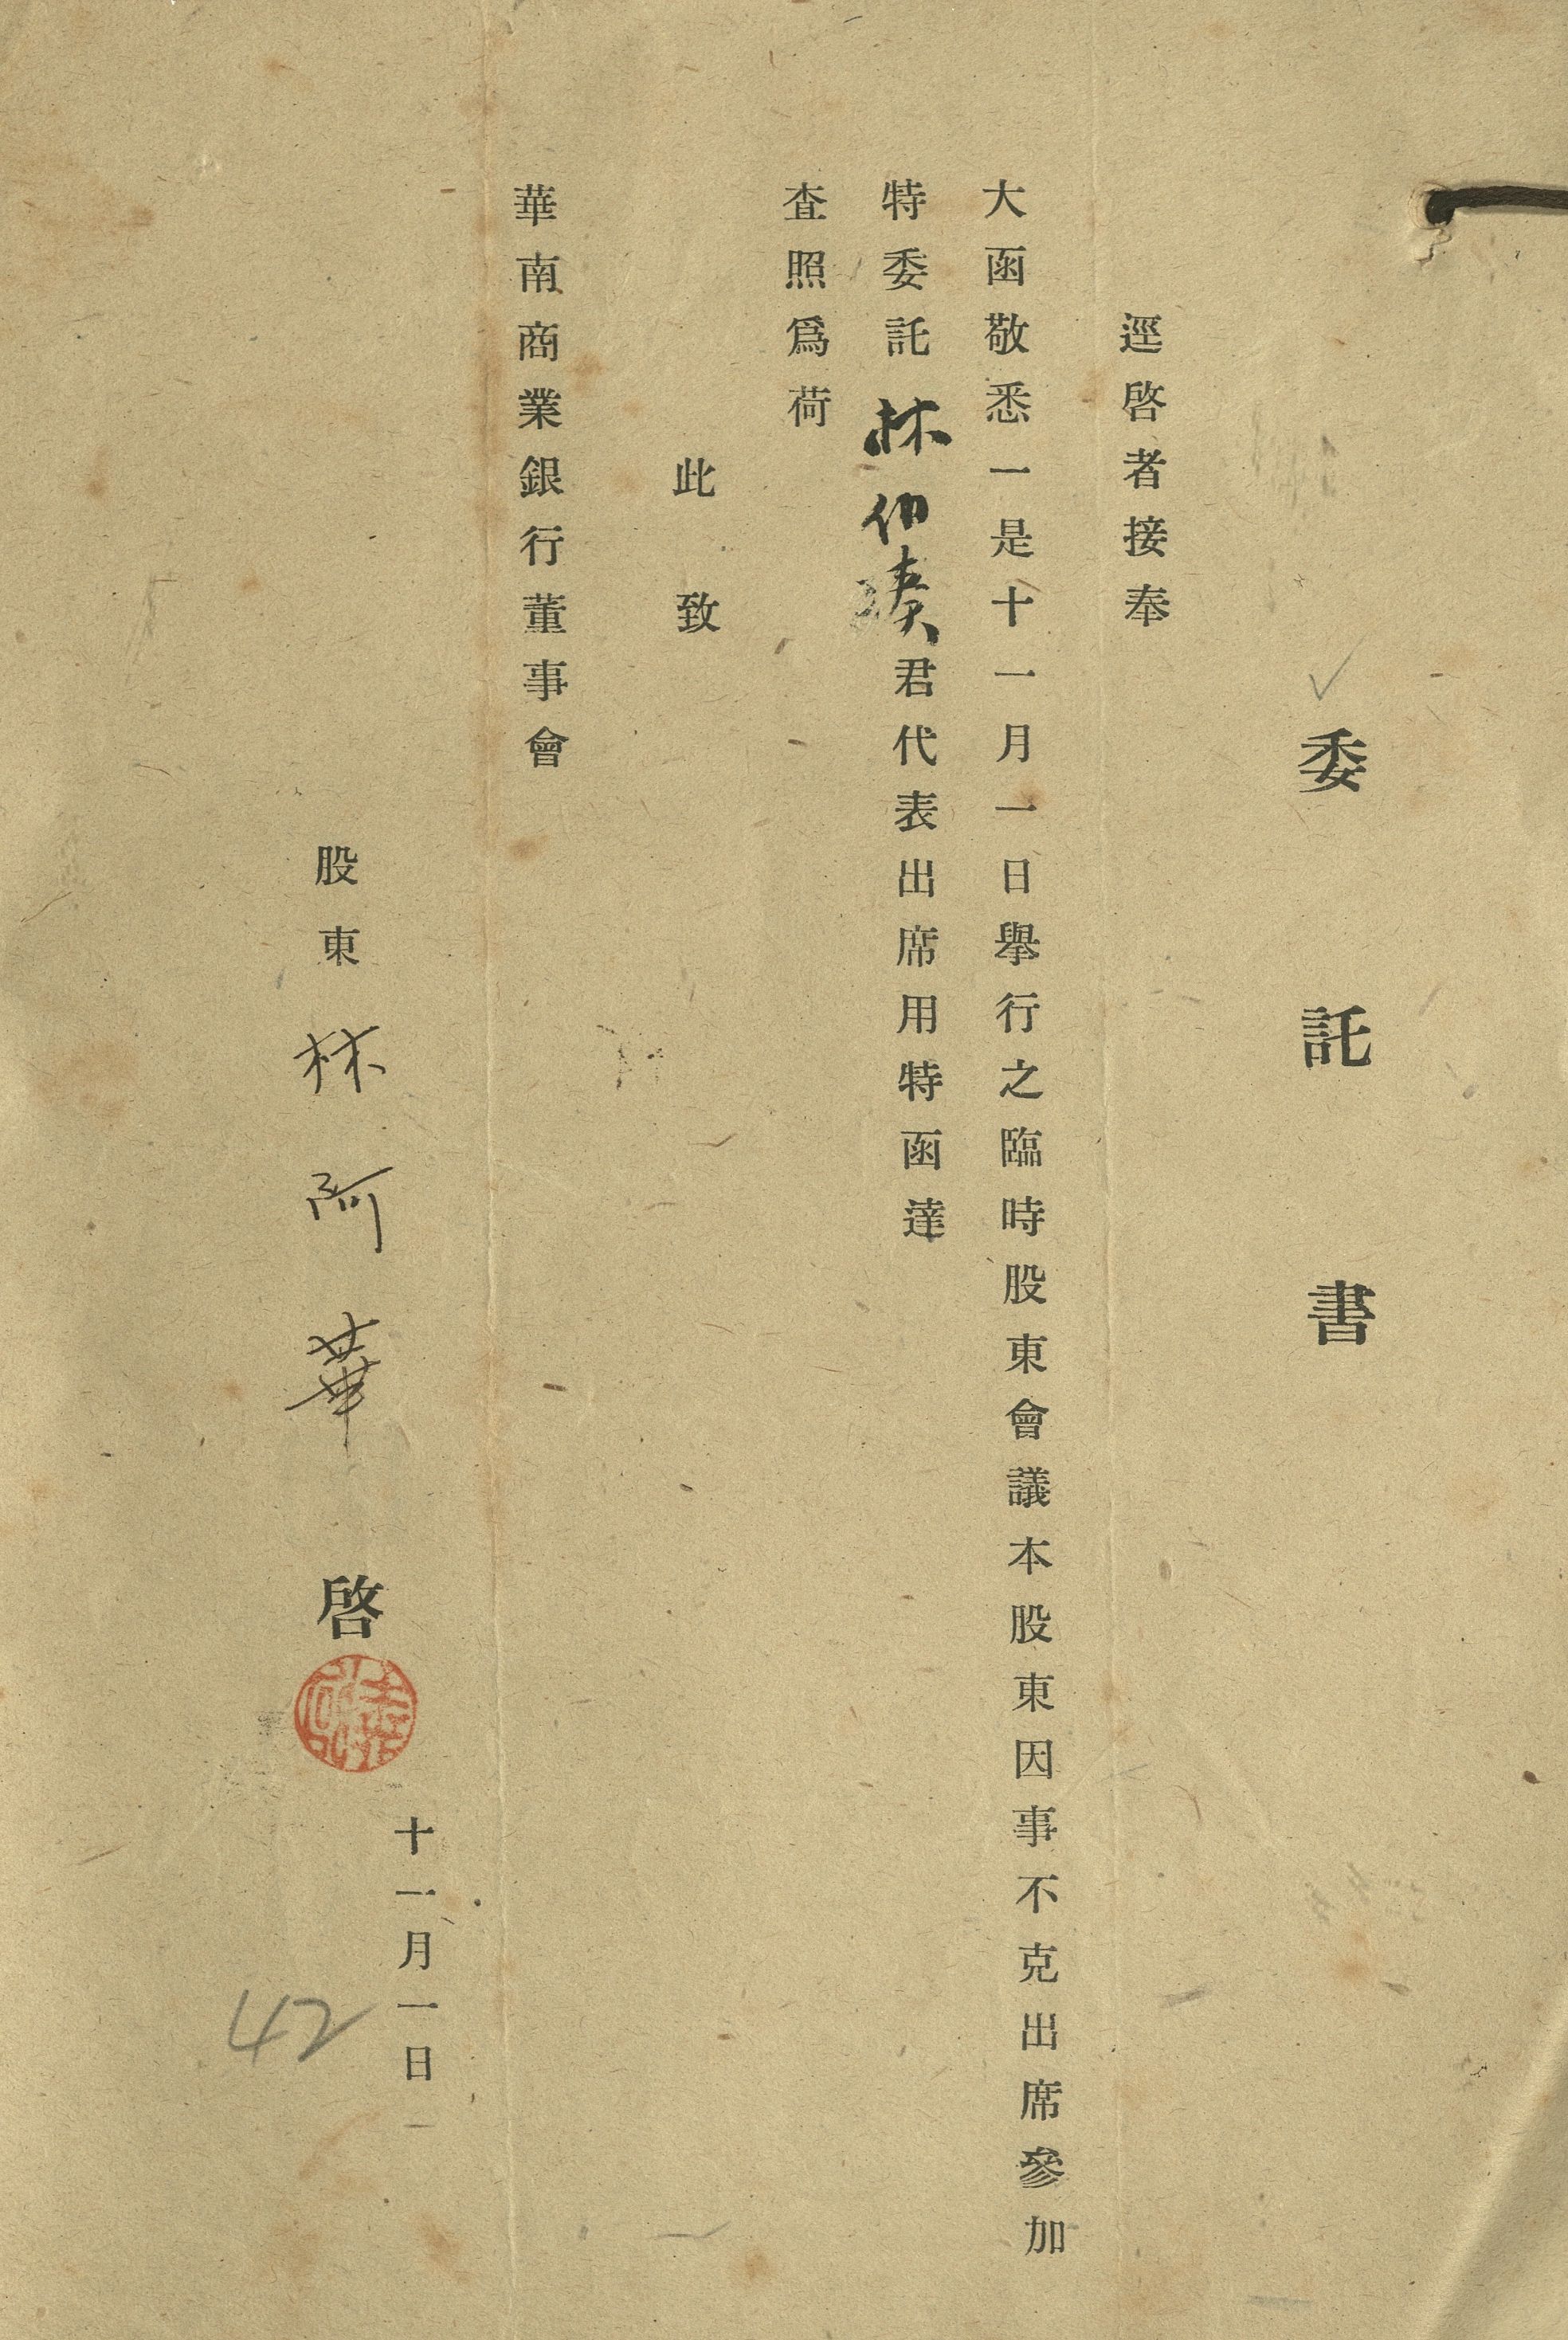 委託書
逕啓者接奉
大函敬悉一是十一月一日舉行之臨時股東會議本股東因事不克出席參加
特委託林伯奏君代表出席用特函達
査照爲荷
此致
華南商業銀行董事會
十一月一日
股東林阿華啓
42